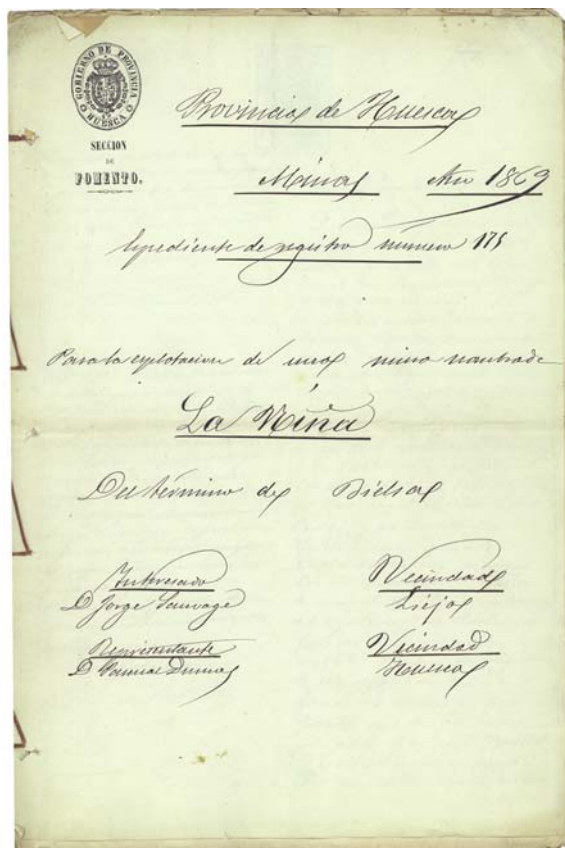 GOBIERNO DE PROVINCIA
HUESCA
SECCION
DE
FOMENTO.
Provincia de Huesca
Minas Año 1869
Expediente de registro número 175
Para la explotacion de una mina nombrada
La Niña
Del término de Bielsa
Interesado Vecindad
D. Jorge Sauvage Lieja
Representante Vecindad
D. Dumas Huesca